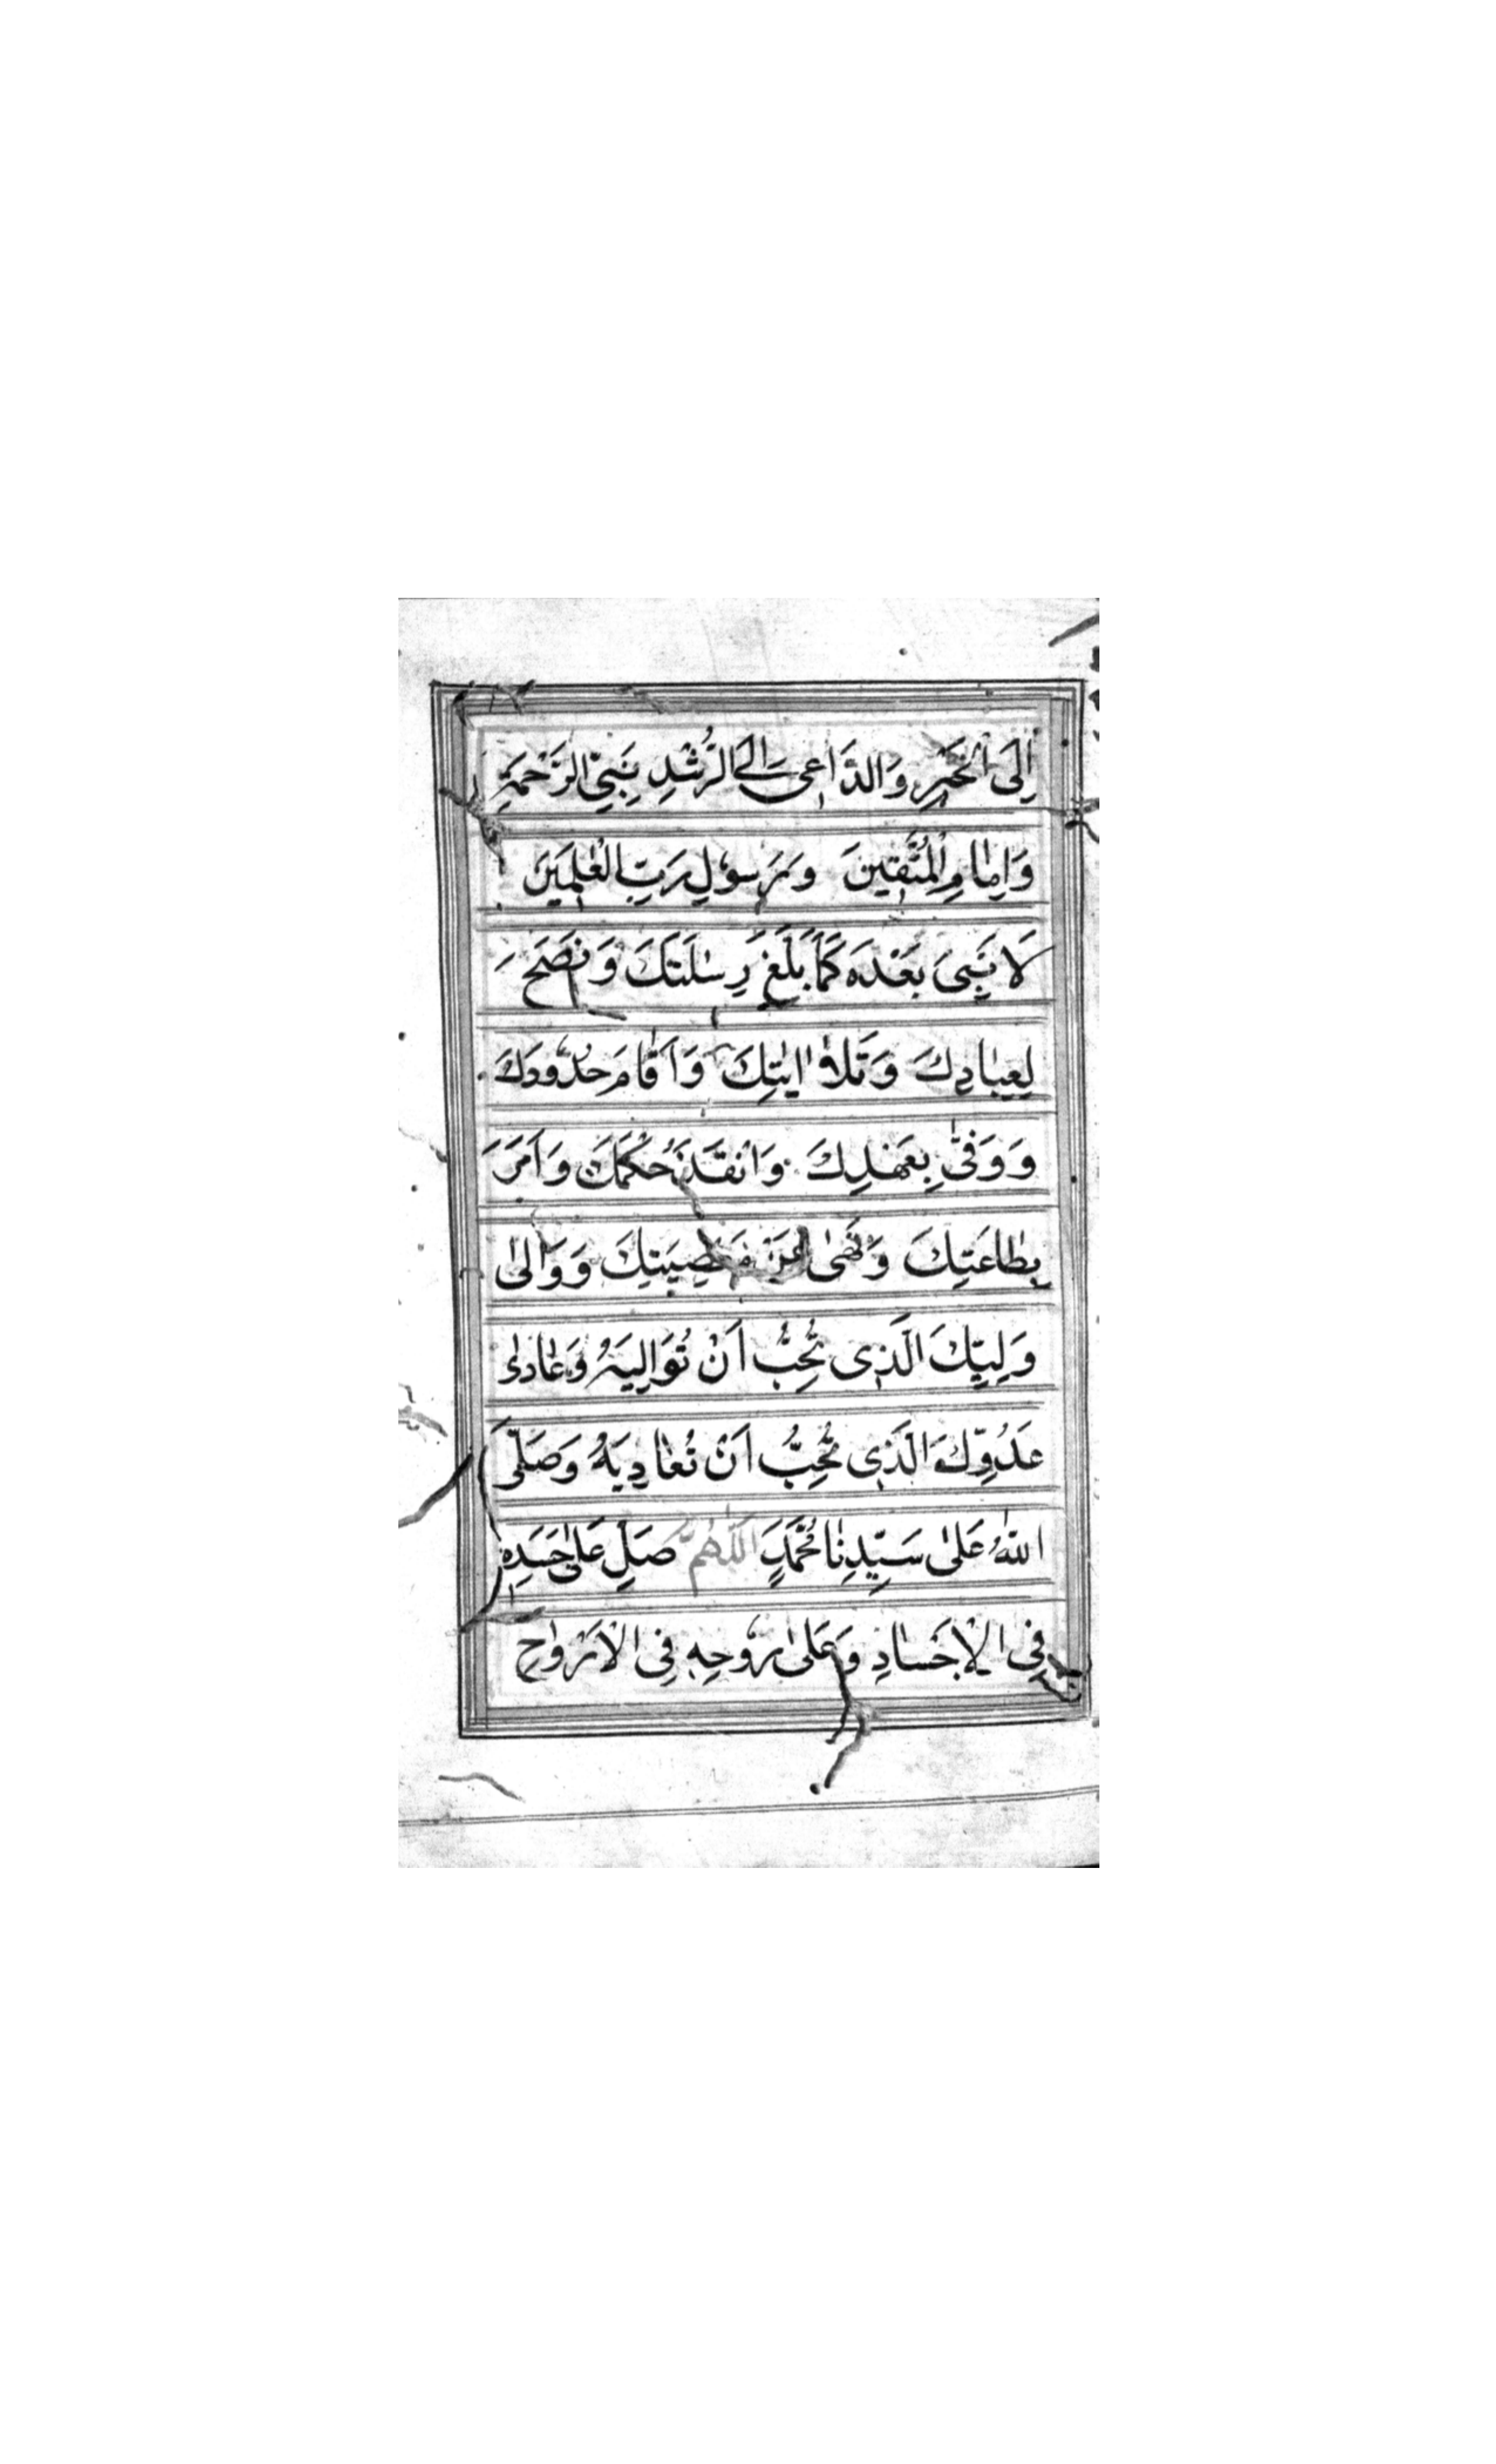 اِلَى الْخَيْرِ وَالدَّاعِى اِلَى الرُّشْدِ نَبِيِّ الرَّحْمَةِ
وَاِمَامِ الْمُتَّقِينَ وَرَسُولِ رَبِّ الْعٰلَمِينَ
لَا نَبِىَّ بَعْدَهُ كَمَا بَلَّغَ رِسٰلَتَكَ وَنَصَحَ
لِعِبَادِكَ وَتَلَا اٰيٰتِكَ وَاَقَامَ حُدُودَكَ
وَوَفٰى بِعَهْدِكَ وَانْقَذَ حُكْمَكَ وَاَمَرَ
بِطَاعَتِكَ وَنَهٰى عَنْ مَعْصِيَتِكَ وَوَالٰى
وَلِيِّكَ الَّذِى تُحِبُّ اَنْ تُوَالِيَهُ وَعَادٰى
عَدُوِّكَ الَّذِى تُحِبُّ اَنْ تُعَادِيَهُ وَصَلَّى
اللّٰهُ عَلٰى سَيِّدِنَا مُحَمَّدٍ اَللّٰهُمَّ صَلِّ عَلٰى جَسَدِهِ
فِى الْاَجْسَادِ وَعَلٰى رُوحِهِ فِى الْاَرْوَاحِ